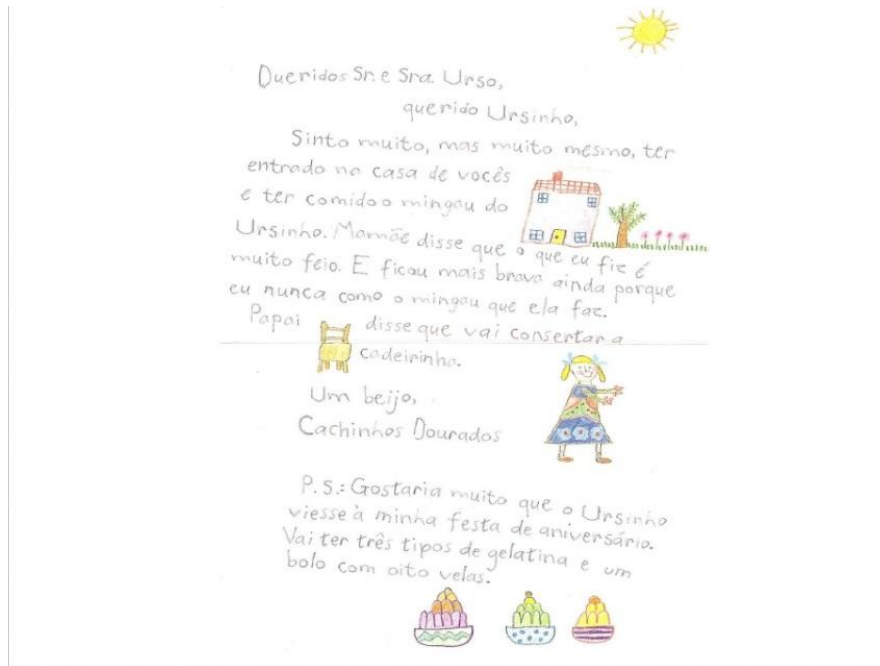 Queridos Sr. e Sra. Urso,
querido Ursinho,
Sinto muito, mas muito mesmo, ter
entrado na casa de vocês
e ter comido o mingau do
Ursinho. Mamãe disse que o que eu fiz é
muito feio. E ficou mais brava ainda porque
eu nunca como o mingau que ela faz.
Papai disse que vai consertar a
cadeirinha.
Um beijo,
Cachinhos Dourados
P.S.: Gostaria muito que o Ursinho
viesse à minha festa de aniversário.
Vai ter três tipos de gelatina e um
bolo com oito velas.